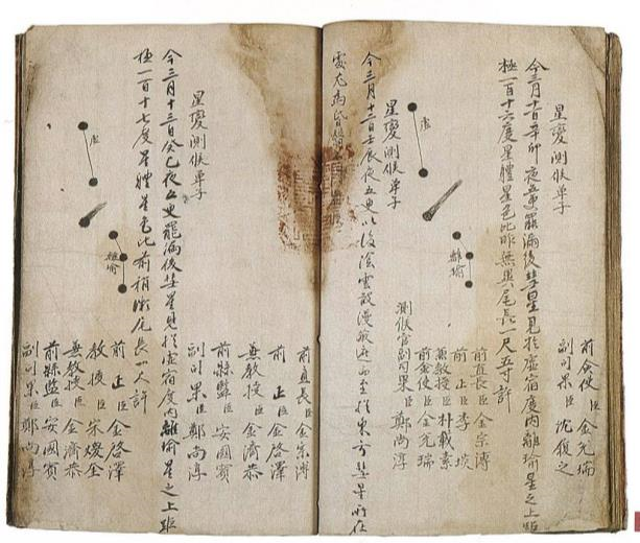 前僉使臣金兌瑞
副司果臣沈之
星變測候單子
今三月十一日辛卯夜五更罷漏後彗星見於虛宿度內離瑜星之上距
極一百十六度星體星色比昨無異尾長一尺五寸許
虛
離瑜
前直長臣金宗溥
前正臣李埮
兼教授臣朴載素
前僉使臣金兌瑞
測候官副司果臣鄭尚淳
星變測候單子
今三月十二日壬辰夜五更以後陰雲散漫而至於東方彗星所在
處尤為昏
前直長臣金宗溥
前正臣金啓澤
兼教授臣金濟恭
前縣監臣安國賓
副司果臣鄭尚淳
星變測候單子
今三月十三日癸巳夜五更罷漏後彗星見於虛宿度內離瑜星之上距
極一百十七度星體星色比前稍微尾長一尺許
虛
離瑜
前正臣金啓澤
教授臣宋燮金
兼教授臣金濟恭
前縣監臣安國賓
副司果臣鄭尚淳